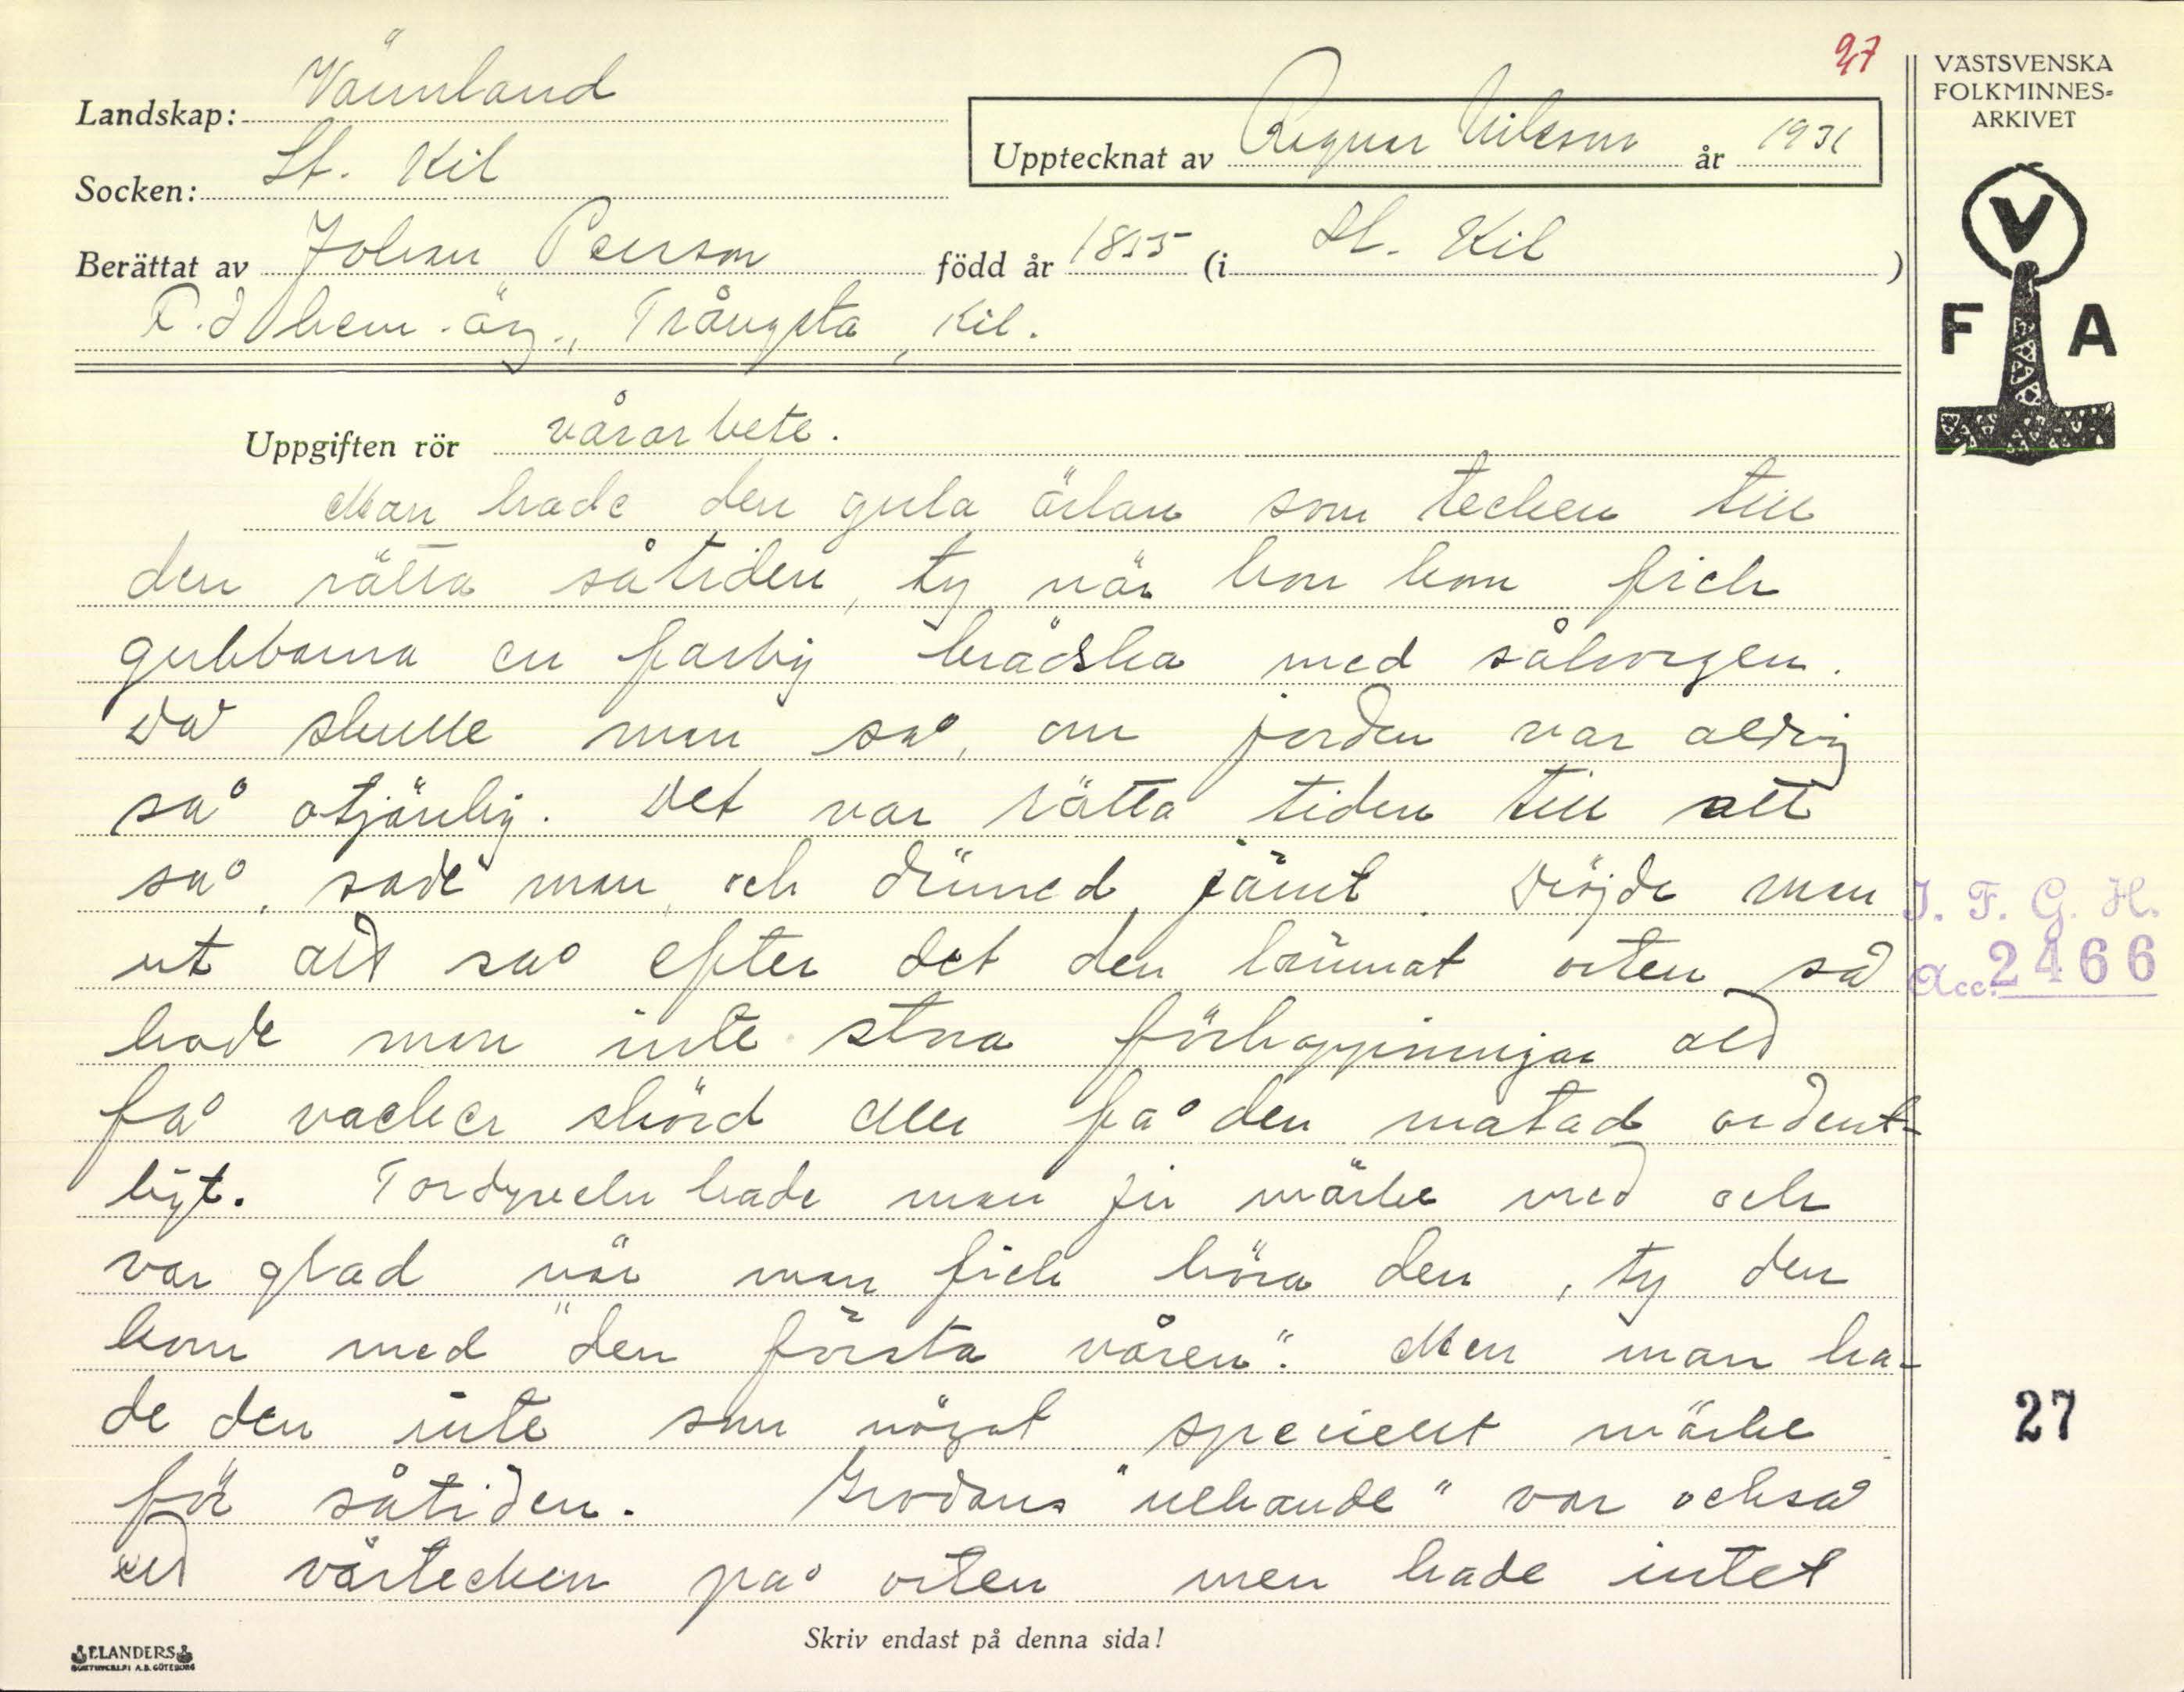 27
VÄSTSVENSKA
FOLKMINNES-
ARKIVET
V
F A
Landskap: Värmland
Socken: St. Kil
Upptecknat av Ragnar Nilsson år 1931
Berättat av Johan Persson född år 1855 (i St. Kil )
F.d hem.äg., Trångsta, Kil.
Uppgiften rör vårarbete.
Man hade den gula ärlan som tecken till
den rätta såtiden, ty när hon kom fick
gubbarna en farlig brådska med såkorgen.
Då skulle man så, om jorden var aldrig
så otjänlig. Det var rätta tiden till att
så, sade man, och därmed jämt. Dröjde man
ut att så efter det den lämnat orten så
hade man inte stora förhoppningar att
få vacker skörd eller få den matad ordent-
ligt. Tordyveln hade man ju märke med och
var glad när man fick höra den, ty den
kom med "den första våren". Men man ha-
de den inte som något speciellt märke
för såtiden. Grodans "uckande" var också
ett vårtecken på orten men hade intet
I. F. G. H.
Acc. 2466
27
Skriv endast på denna sida!
ELANDERS
BOKTRYCKERI A.B. GÖTEBORG